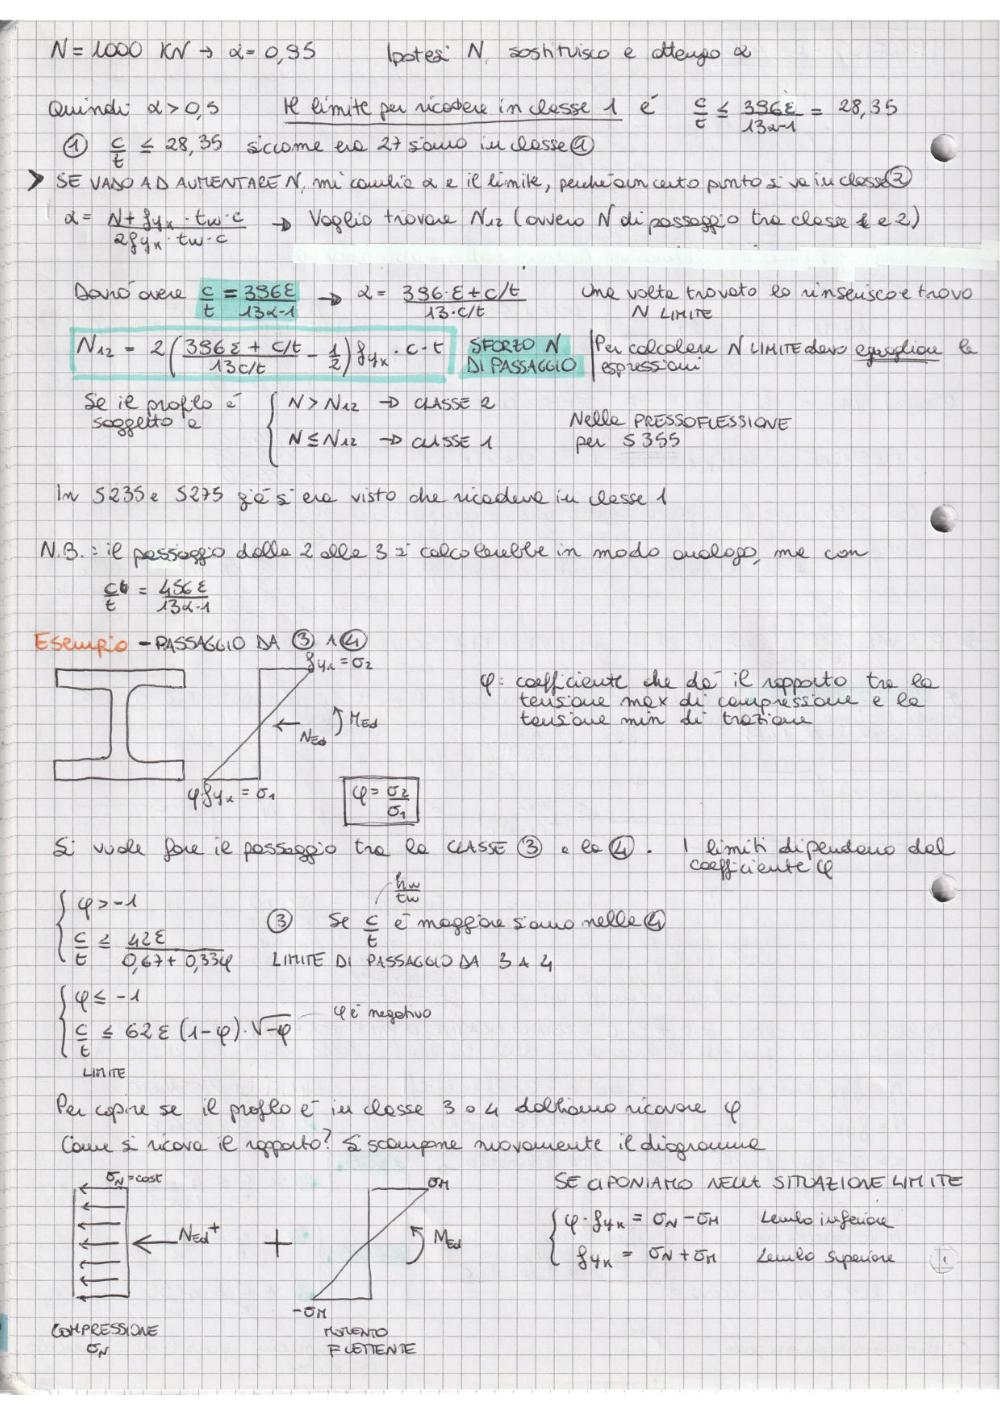 N = 1000 KN → α = 0,95 Ipotesi N, sostituisco e ottengo α
Quindi α > 0,5 Il limite per ricadere in classe 1 è c/t ≤ 396ε/13α-1 = 28,35
① c/t ≤ 28,35 siccome era 27 siamo in classe ①
> SE VADO AD AUMENTARE N, mi cambia α e il limite, perché a un certo punto si va in classe ②
α = N + fyk · tw · c / 2fyk · tw · c → Voglio trovare N12 (ovvero N di passaggio tra classe 1 e 2)
Dovrò avere c/t = 396ε/13α-1 → α = 396·ε + c/t / 13·c/t Una volta trovato lo rinserisco e trovo
N LIMITE
N12 = 2 (396ε + c/t / 13c/t - 1/2) fyk · c · t SFORZO N DI PASSAGGIO Per calcolare N LIMITE devo eguagliare le espressioni
Se il profilo è soggetto a { N > N12 → CLASSE 2
N ≤ N12 → CLASSE 1 Nella PRESSOFLESSIONE per S355
In S235 e S275 già si era visto che ricadeva in classe 1
N.B.: il passaggio dalla 2 alla 3 si calcolerebbe in modo analogo, ma con
c/t = 456ε/13α-1
Esempio - PASSAGGIO DA ③ A ④
fyk = σ2
φ: coefficiente che dà il rapporto tra la
tensione max di compressione e la
tensione min di trazione
NEd MEd
φ·fyk = σ1
φ = σ2/σ1
Si vuole fare il passaggio tra la CLASSE ③ e la ④. I limiti dipendono dal
coefficiente φ
hw/tw
{ φ > -1
c/t ≤ 42ε/0,67 + 0,33φ ③ Se c/t è maggiore siamo nella ④
LIMITE DI PASSAGGIO DA 3 A 4
{ φ ≤ -1
c/t ≤ 62ε (1-φ)·√-φ φ è negativo
LIMITE
Per capire se il profilo è in classe 3 o 4 dobbiamo ricavare φ
Come si ricava il rapporto? Si scompone nuovamente il diagramma
σN = cost
NEd+
+
σM
MEd
-σM
SE CI PONIAMO NELLA SITUAZIONE LIMITE
{ φ·fyk = σN - σM Lembo inferiore
fyk = σN + σM Lembo superiore
COMPRESSIONE
σN
MOMENTO
FLETTENTE